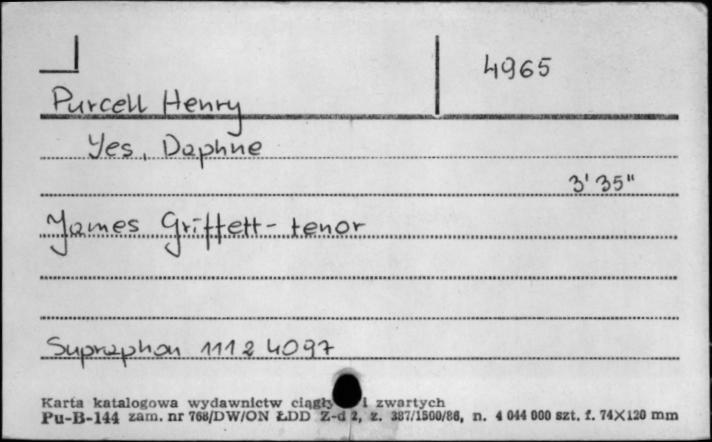 4965
Purcell Henry
Yes, Daphne
3' 35"
James Griffett - tenor
Supraphon 1112 4097
Karta katalogowa wydawnictw ciągły i zwartych
Pu-B-144 zam. nr 768/DW/ON ŁDD Z-d 2, z. 387/1500/86, n. 4 044 000 szt. f. 74×120 mm